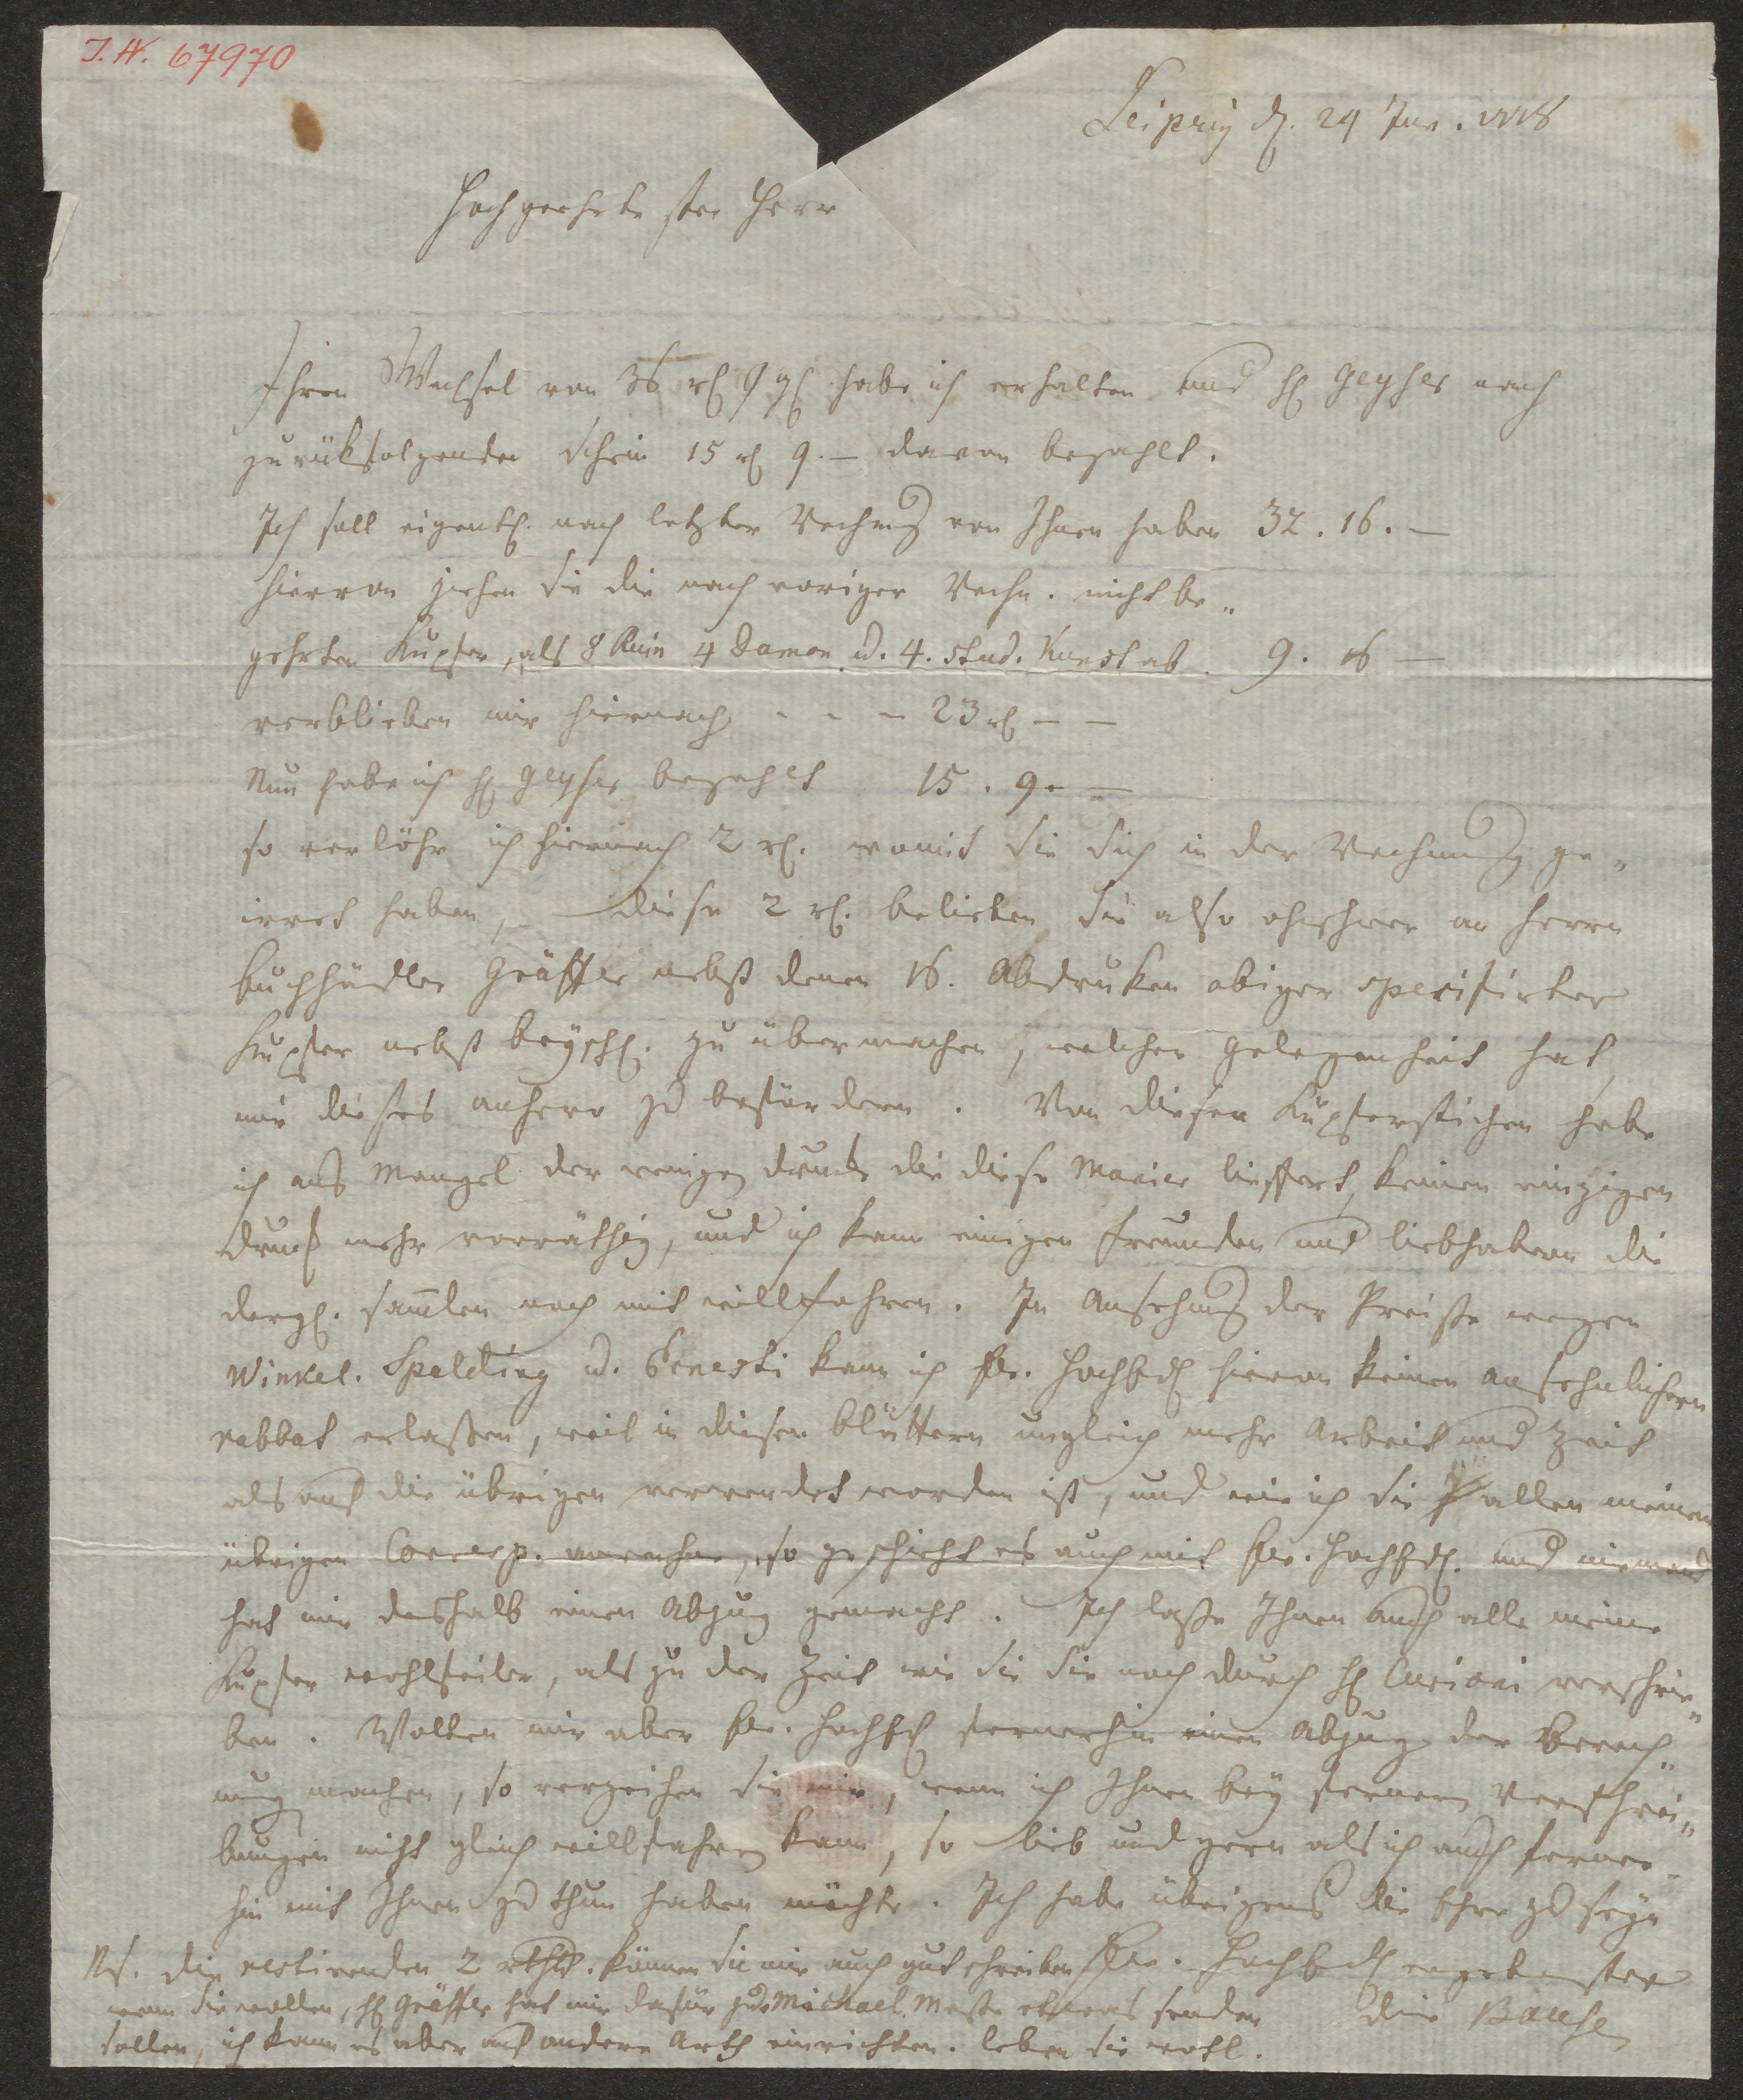 I. N. 67970
Leipzig d. 24 Jun. 1778
Hochgeehrtester Herr
Ihren Wechsel von 36 rl 9 gl habe ich erhalten und Hl Geyser nach
zurükfolgenden Schein 15 rl 9.— davon bezahlt.
Ich soll eigentl. nach letzter Rechnung von Ihnen haben 32. 16. —
hiervon ziehen Sie die nach voriger Rechn. nicht be„
gehrten Kupfer, als 8 Ruin 4 Damon u. 4. Stud. Kunst ab 9. 16 —
verblieben mir hiernach - - - 23 rl — —
Nun habe ich Hl Geyser bezahlt 15. 9. —
so verlöhr ich hiernach 2 rl. womit Sie sich in der Rechnung ge„
irret haben, diese 2 rl. belieben Sie also ohnschwer an Herrn
Buchhändler Gräffer nebst denen 16. Abdruken obiger specificirter
Kupfer nebst beyschl. zu übermachen, welcher Gelegenheit hat,
mir dieses anhero zu befördern. Von diesen Kupferstichen habe
ich aus Mangel der wenigen Druke die diese Manier lieffert, keinen einzigen
Druck mehr vorräthig, und ich kann einigen Freunden und Liebhabern die
dergl. samlen noch mit willfahren. In Ansehung der Preiße wegen
Winkel. Spalding u. Ernesti kann ich Ew. HochEdl hievon keinen ansehnlichern
rabbat erlaßen, weil in diesen Blättern ungleich mehr Arbeit und Zeit
als auf die übrigen verwendet worden ist, und wie ich sie allen meinen
übrigen Corresp. anrechne, so geschieht es auch mit Ew. HochEdl. und niemand
hat mir deshalb einen Abzug gemacht. Ich laße Ihnen auch alle meine
Kupfer wohlfeiler, als zu der Zeit wie Sie sie noch durch Hl Curiani verschrie„
ben. Wolten mir aber Ew. HochEdl fernerhin einen Abzug der Berech„
nung machen, so verzeihen Sie mir, wenn ich Ihnen bey fernern Verschrei„
bungen nicht gleich willfahren kann, so lieb und gern als ich auch ferner„
hin mit Ihnen zu thun haben möchte. Ich habe übrigens die Ehre zu seyn
Ns. die restirenden 2 rthlr. können Sie mir auch gut schreiben Ew. HochEdl ergebenster
wenn Sie wollen, Hl Gräffer hat mir dafür zur Michael. Meße etwas senden Dier Bause
sollen, ich kann es aber auf andere Arth einrichten. leben Sie wohl.